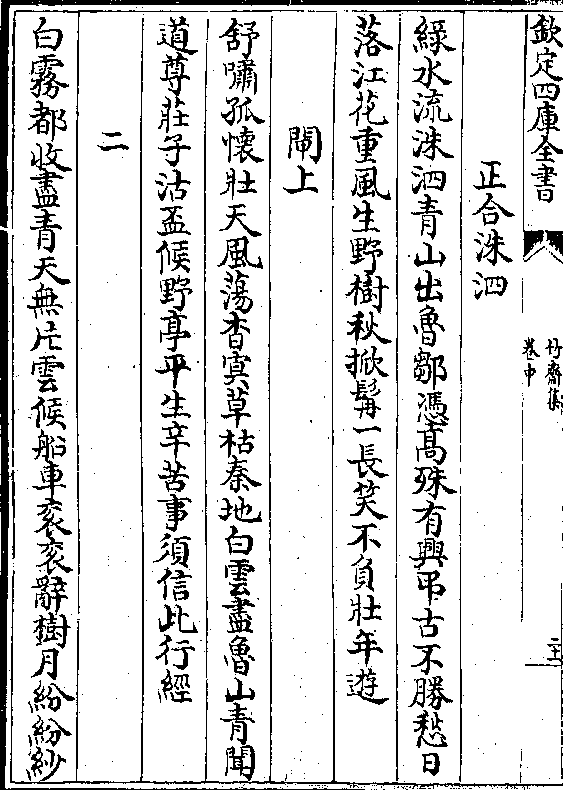 欽定四庫全書
竹齋集
卷中
二十一
正合洙泗
綠水流洙泗青山出魯鄒憑髙殊有興弔古不勝愁日
落江花重風生野樹秋掀髯一長笑不負壯年遊
閘上
舒嘯孤懷壯天風蕩杳冥草枯秦地白雲盡魯山青聞
道尊莊子沽盃候野亭平生辛苦事須信此行經
二
白霧都收盡青天無片雲候船車衮衮辭樹月紛紛紗